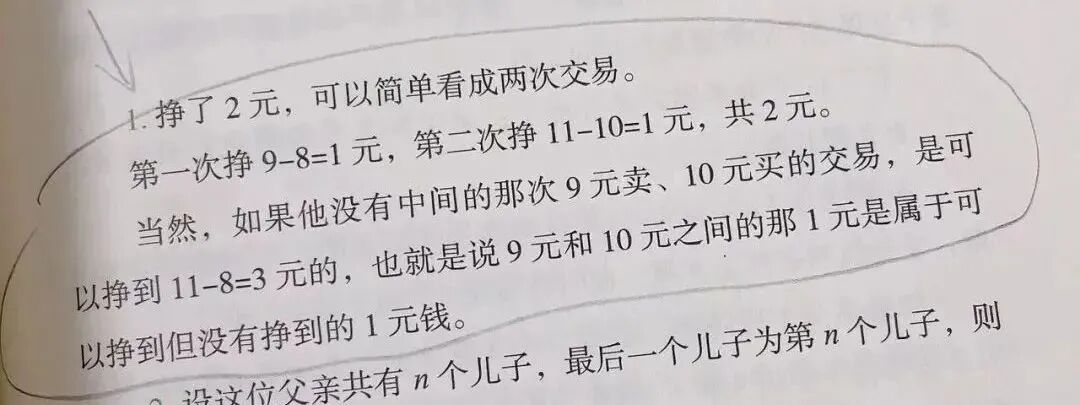 1. 挣了 2 元，可以简单看成两次交易。
第一次挣 9-8=1 元，第二次挣 11-10=1 元，共 2 元。
当然，如果他没有中间的那次 9 元卖、10 元买的交易，是可
以挣到 11-8=3 元的，也就是说 9 元和 10 元之间的那 1 元是属于可
以挣到但没有挣到的 1 元钱。
设这位父亲共有 n 个儿子，最后一个儿子为第 n 个儿子，则